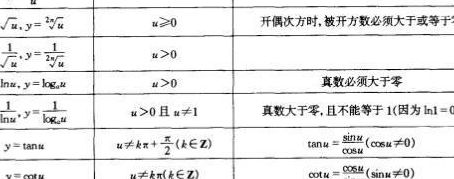 u
√u, y = ²ⁿ√u u≥0 开偶次方时,被开方数必须大于或等于
1/√u, y = 1/²ⁿ√u u>0
lnu, y = logₐu u>0 真数必须大于零
1/lnu, y = 1/logₐu u>0 且 u≠1 真数大于零,且不能等于 1(因为 ln1=0
y = tanu u≠kπ+π/2(k∈Z) tanu = sinu/cosu(cosu≠0)
y = cotu u≠kπ(k∈Z) cotu = cosu/(sinu≠0)